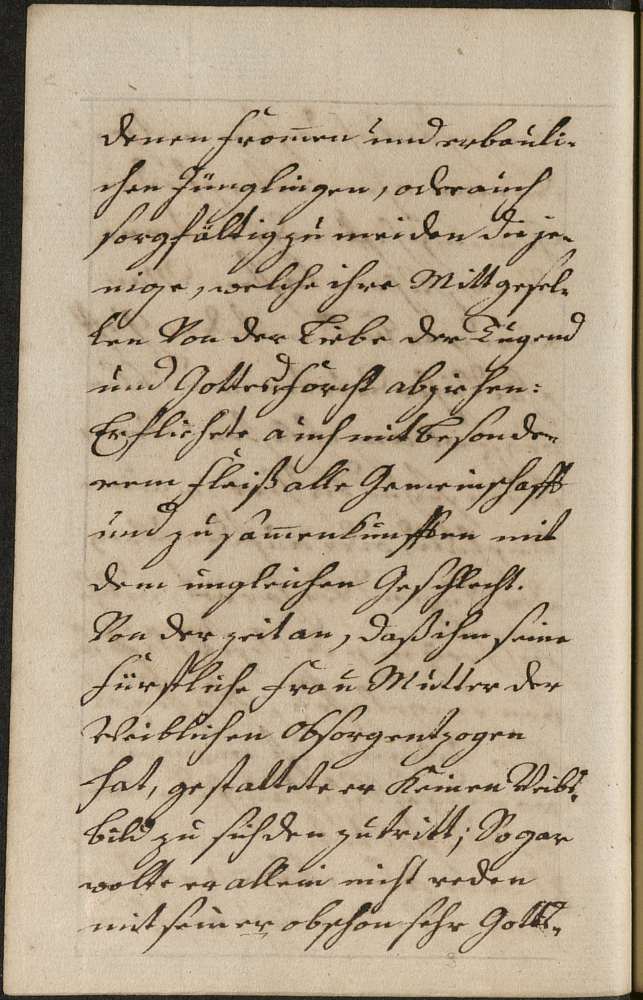 denen from̄en und erbauli-
chen Jünglingen, oder auch
sorgfältig zu meiden die je-
nige, welche ihre Mittgesel-
len Von der Liebe der Tugend
und Gottesforcht abziehen:
Er fliehete auch mit besonde-
rem fleiß alle Gemeinschafft
und zusam̄enkunfften mit
dem ungleichen Geschlecht.
Von der zeit an, daß ihm seine
Fürstliche Frau Mutter der
Weiblichen Obsorg entzogen
hat, gestattete er Keinen Weibs-
bild zu sich den zutritt; Sogar
wolte er allein nicht reden
mit seiner obschon sehr Gotts-